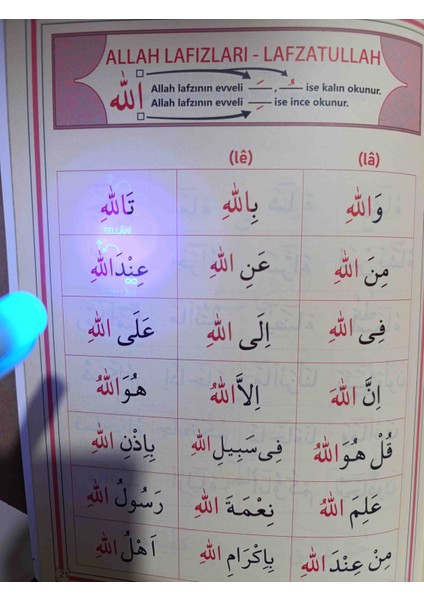 ALLAH LAFIZLARI - LAFZATULLAH
Allah lafzının evveli ـَ , ـُ ise kalın okunur.
اللّٰه
Allah lafzının evveli ـِ ise ince okunur.
(lê) (lâ)
وَاللّٰهِ بِاللّٰهِ تَاللّٰهِ
TELLÂHİ
مِنَ اللّٰهِ عَنِ اللّٰهِ عِنْدَ اللّٰهِ
فِى اللّٰهِ اِلَى اللّٰهِ عَلَى اللّٰهِ
اِنَّ اللّٰهَ اِلاَّ اللّٰهُ هُوَ اللّٰهُ
قُلْ هُوَ اللّٰهُ فِى سَبِيلِ اللّٰهِ بِاِذْنِ اللّٰهِ
عَلِمَ اللّٰهُ نِعْمَةَ اللّٰهِ رَسُولُ اللّٰهِ
مِنْ عِنْدَ اللّٰهِ بِاِكْرَامِ اللّٰهِ اَهْلُ اللّٰهِ